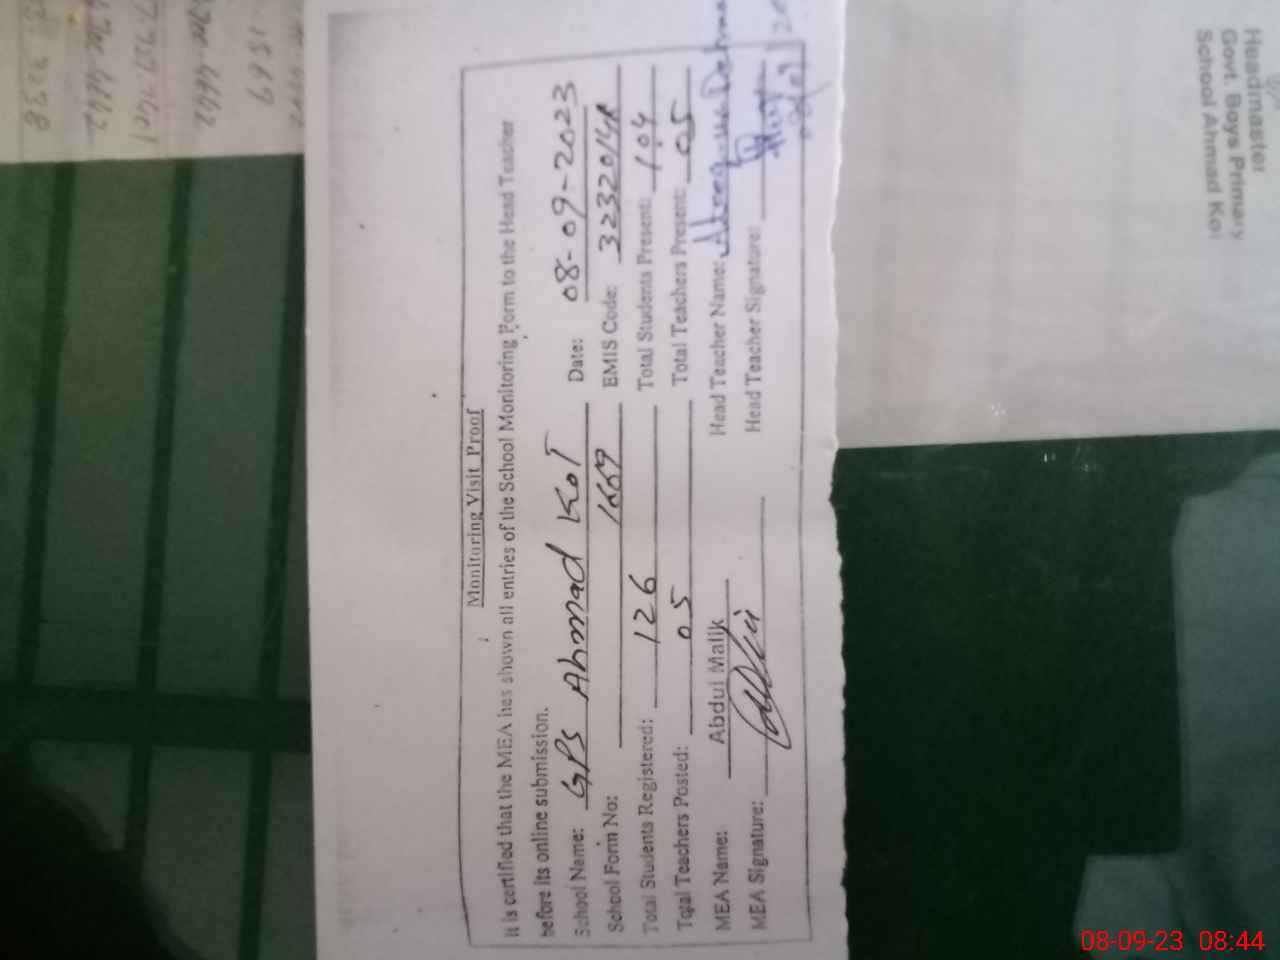 Monitoring Visit Proof
It is certified that the MEA has shown all entries of the School Monitoring Form to the Head Teacher
before its online submission.
School Name: GPS Ahmad Kot Date: 08-09-2023
School Form No: 1669 EMIS Code:
Total Students Registered: 126 Total Students Present: 104
Total Teachers Posted: 05 Total Teachers Present: 05
MEA Name: Abdul Malik Head Teacher Name:
MEA Signature: Head Teacher Signature:
Headmaster
Govt. Boys Primary
School Ahmad Kot
08-09-23 08:44